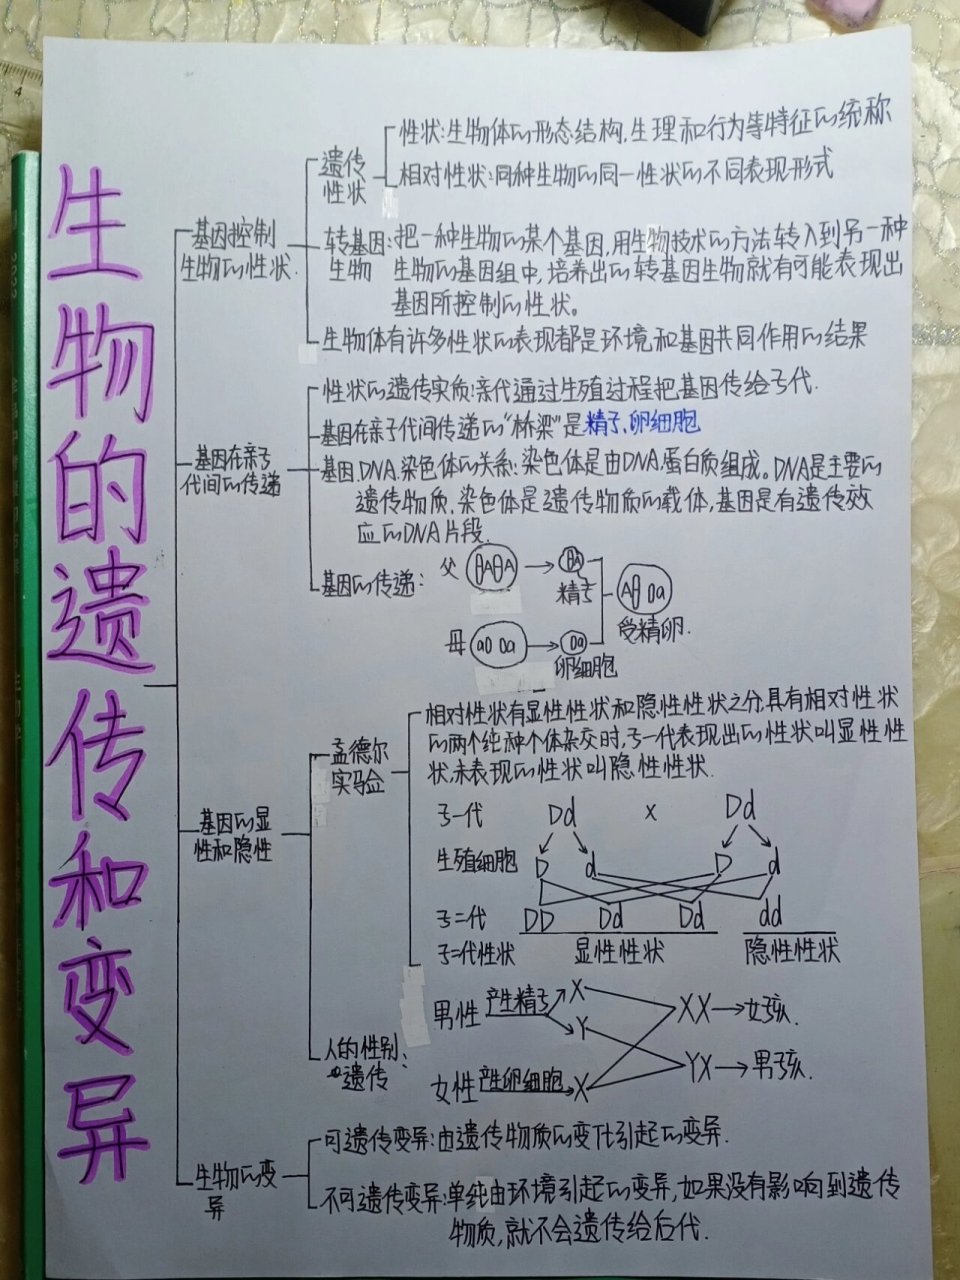 生物的遗传和变异
基因控制
生物的性状.
遗传
性状
性状:生物体的形态结构,生理和行为等特征的统称
相对性状:同种生物的同一性状的不同表现形式
转基因:把一种生物的某个基因,用生物技术的方法转入到另一种
生物 生物的基因组中,培养出的转基因生物就有可能表现出
基因所控制的性状。
生物体有许多性状的表现都是环境和基因共同作用的结果
基因在亲子
代间的传递
性状的遗传实质:亲代通过生殖过程把基因传给子代.
基因在亲子代间传递的“桥梁”是精子、卵细胞
基因.DNA.染色体的关系:染色体是由DNA.蛋白质组成。DNA是主要的
遗传物质.染色体是遗传物质的载体,基因是有遗传效
应的DNA片段.
基因的传递:
父 A A → A
精子
A a
受精卵.
母 a a → a
卵细胞
基因的显
性和隐性
孟德尔
实验
相对性状有显性性状和隐性性状之分.具有相对性状
的两个纯种个体杂交时,子一代表现出的性状叫显性性
状,未表现的性状叫隐性性状.
子一代 Dd x Dd
生殖细胞 D d D d
子二代 DD Dd Dd dd
子二代性状 显性性状 隐性性状
人的性别
遗传
男性 产生精子 X
Y
XX→女孩.
女性 产卵细胞 X
YX→男孩.
生物的变
异
可遗传变异:由遗传物质的变化引起的变异.
不可遗传变异:单纯由环境引起的变异,如果没有影响到遗传
物质,就不会遗传给后代.